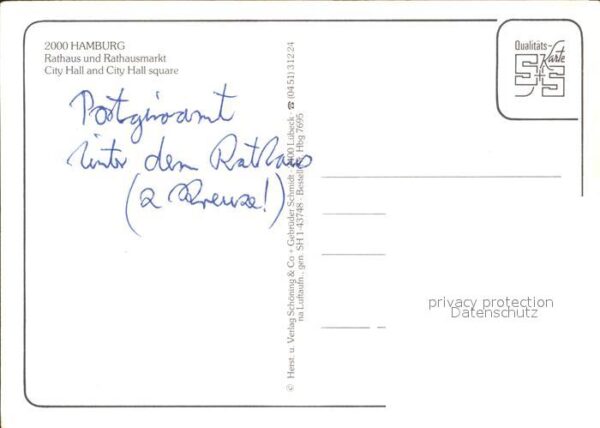 2000 HAMBURG
Rathaus und Rathausmarkt
City Hall and City Hall square
Postgiroamt
hinter dem Rathaus
(2 Kreuze!)
© Herst. u. Verlag Schöning & Co + Gebrüder Schmidt · 2400 Lübeck · ☎ (0451) 31224
na Luftaufn., gen. SH 1-43748 · Bestell-Nr. Hbg 7695
Qualitäts-
Karte
S+S
privacy protection
Datenschutz